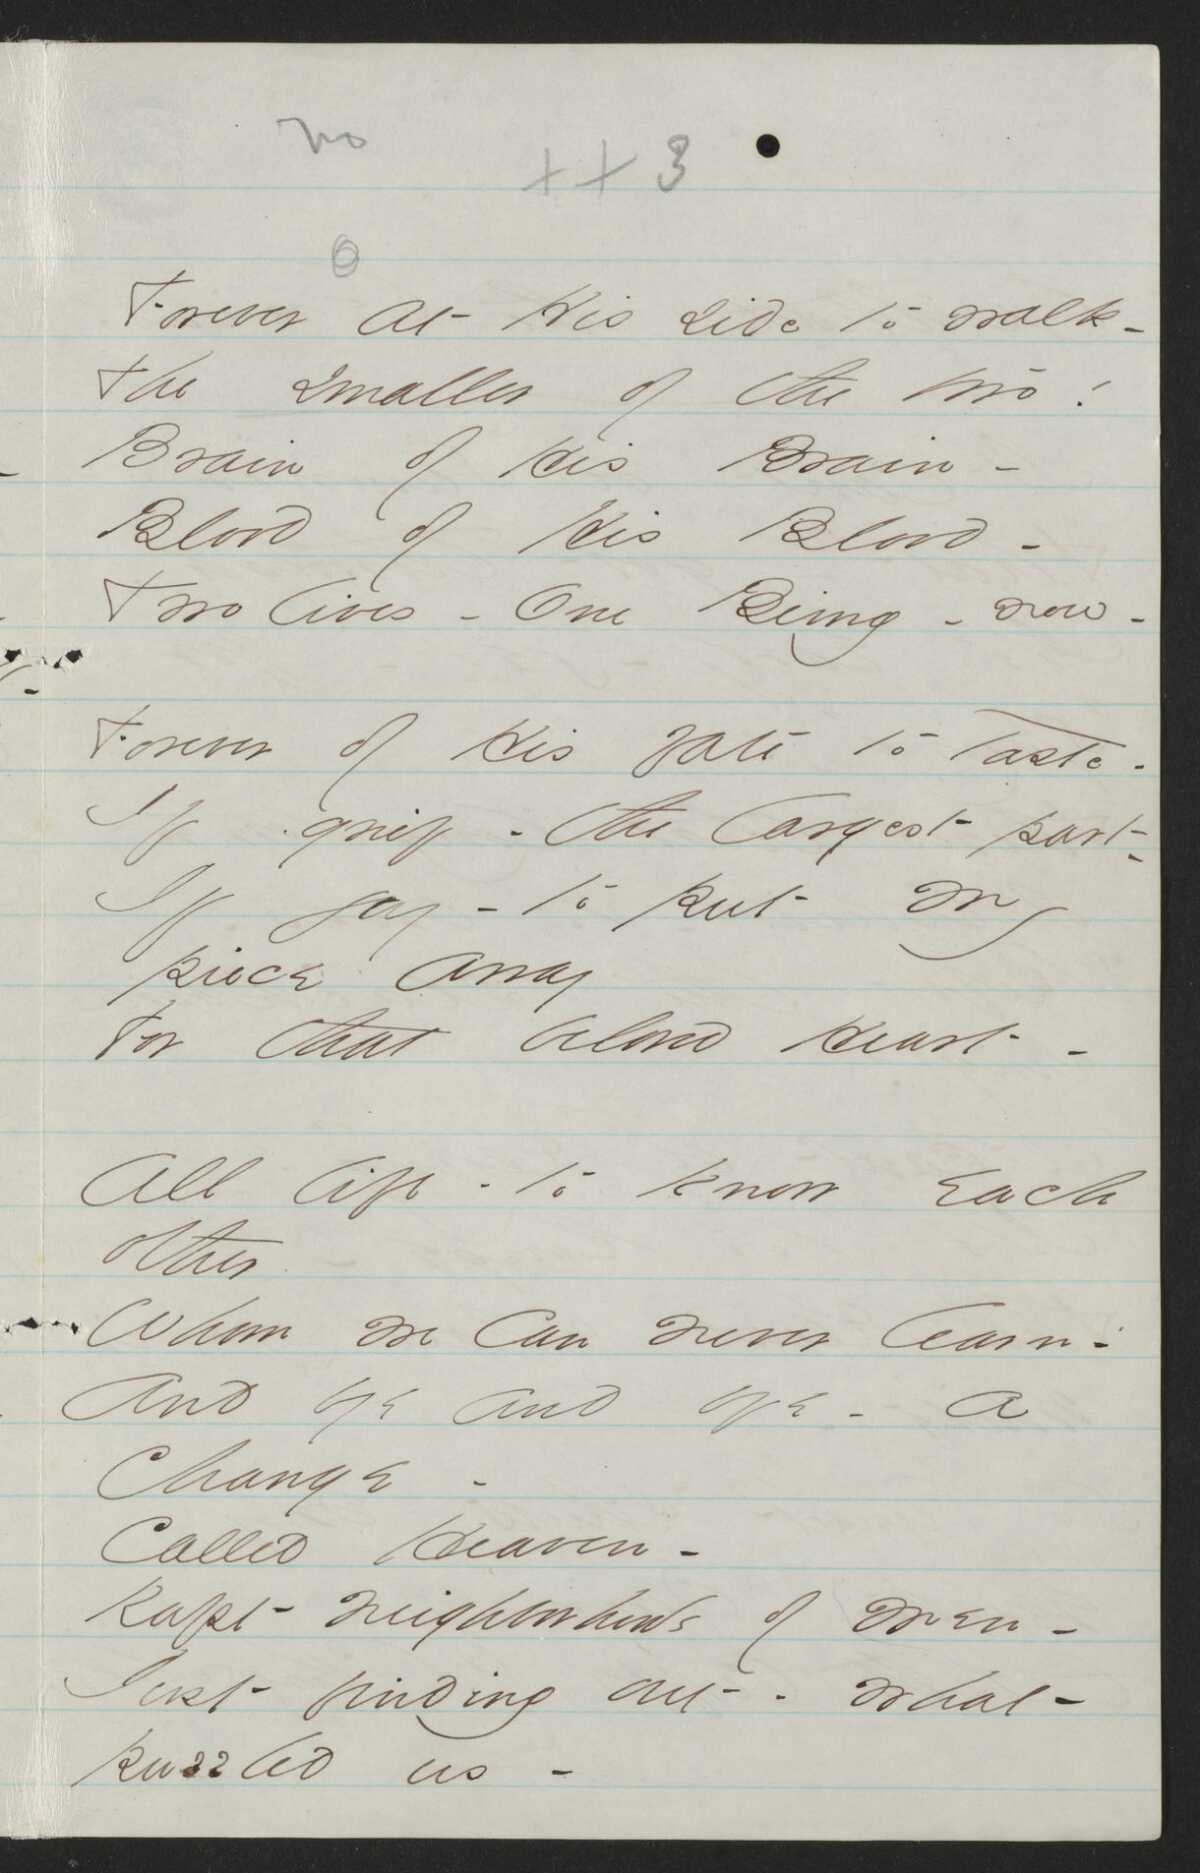 no
++ 3
Forever at His side to walk -
The smaller of the two!
Brain of His Brain -
Blood of His Blood -
Two lives - One Being - now -
Forever of His fate to taste -
If grief - the largest part -
If joy - to put my
piece away
For that beloved Heart -
All life - to know each
other
Whom we can never learn -
And bye and bye - a
Change -
Called Heaven -
Rapt neighborhoods of men -
Just finding out - what
puzzled us -